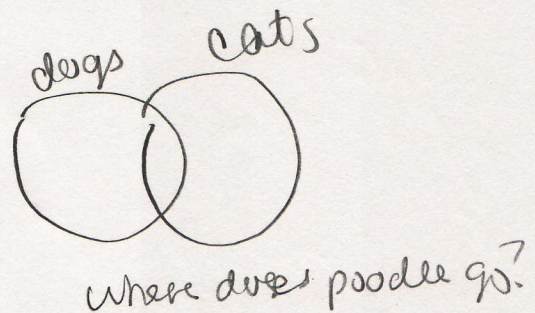 dogs
cats
where does poodle go?